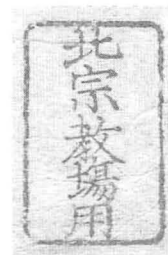 北宗教場用